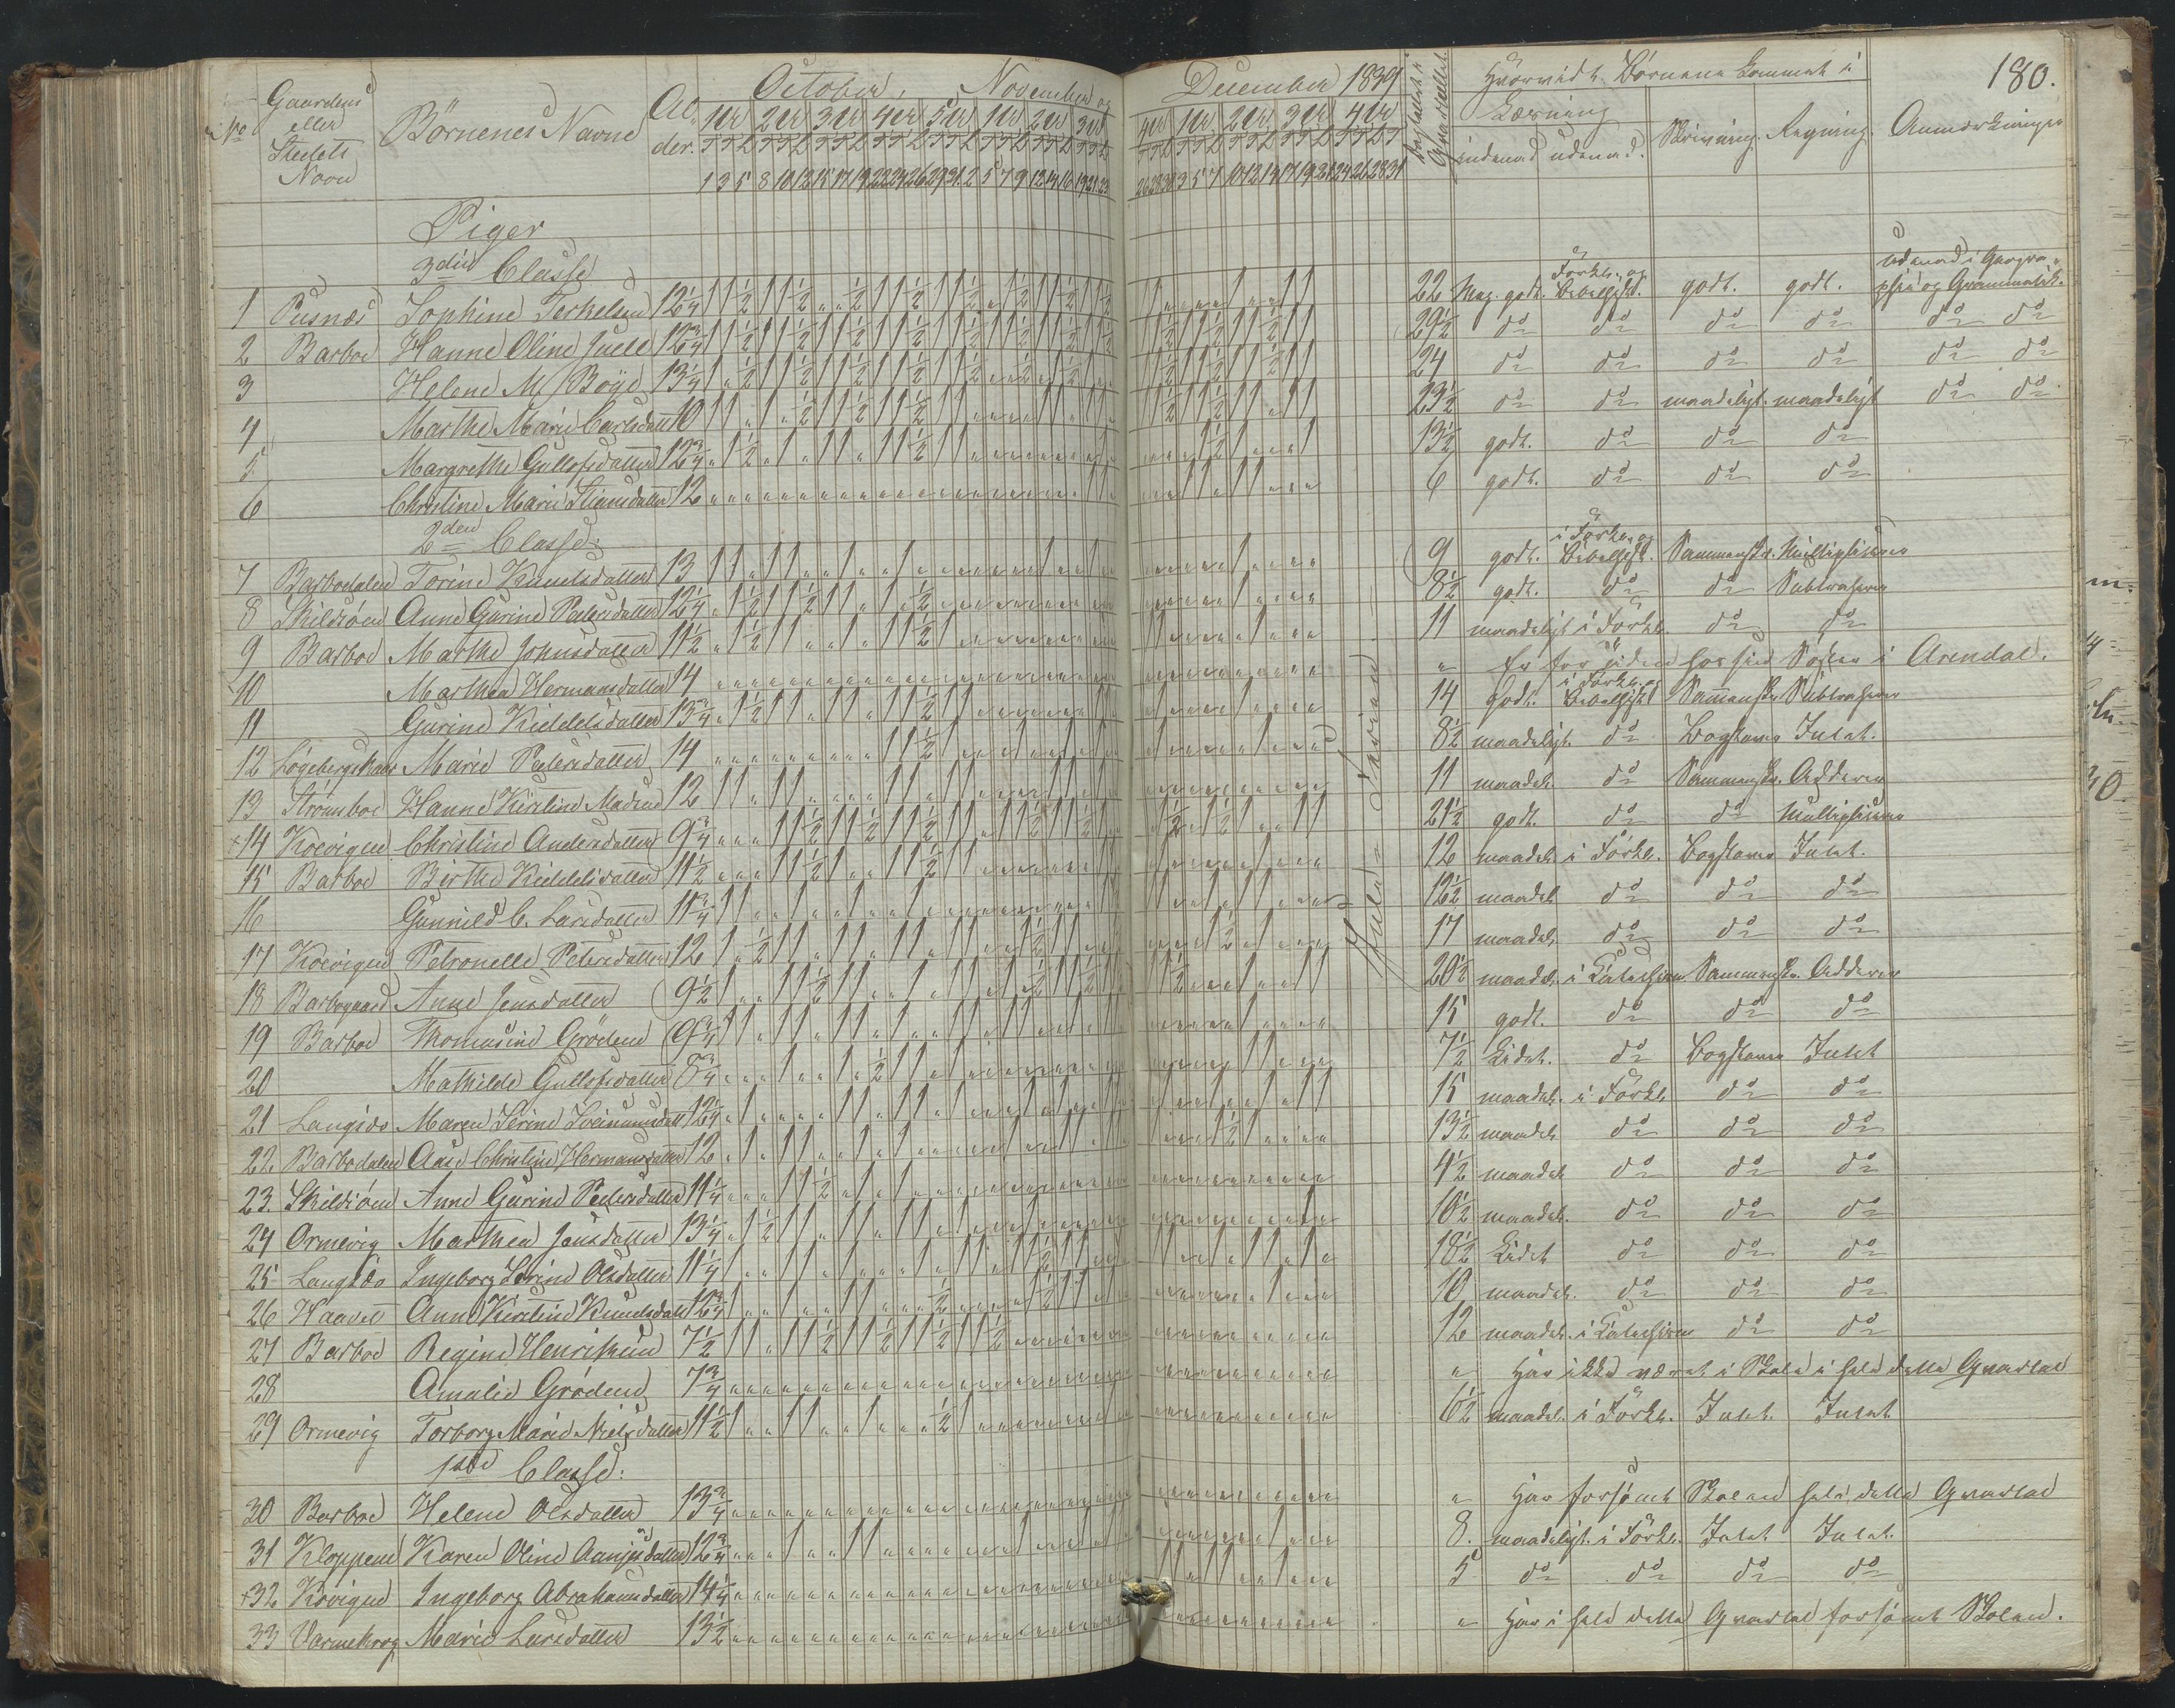 180.
No Gaardens eller Stedets Navn Börnenes Navne Alder. October, November og December 1839 Hvorvidt Börnene kommet i
Læsning indenad udenad. Skrivning. Regning. Anmærkninger
1ste 2den 3die 4de 5te 1ste 2den 3die 4de 1ste 2den 3die 4de
1 3 5 8 10 12 15 17 19 22 24 26 29 31 2 5 7 9 12 14 16 19 21 23 26 28 30 3 5 7 10 12 14 17 19 21 24 26 28 31
Piger
3die Classe
1 Pusnæs Sophine Terkelsen 12 1/4 22 Meg. godt. Forkl. og Bibelhist. godt. godt. udenad i Geographie og Grammatik.
2 Barboe Hanne Oline Juell 12 3/4 29 1/2 do do do do do do
3 Helene M. Böye 13 1/4 24 do do do do do do
4 Marthe Marie Carlsdatt 10 23 1/2 do do maadeligt. maadeligt do do
5 Margrethe Gullofsdatter 12 3/4 13 1/2 godt. do do do
6 Christine Marie Stiansdatter 12 6 godt. do do do
2den Classe:
7 Barbodalen Torine Knudsdatter 13 9 godt. i Forkl. og Bibelhist. Sammenskr. Multiplicere
8 Skilsöen Anne Gurine Pedersdatter 12 1/4 8 1/2 godt. do do Subtrahere
9 Barboe Marthe Johnsdatter 11 1/2 11 maadeligt i Forkl. do do
10 Marthea Hermansdatter 14 " Er for tiden hos sin Söster i Arendal.
11 Gurine Kieldelsdatter 13 3/4 14 godt. i Forkl. og Bibelhist Sammenskr. Subtrahere
12 Lögebergskaar Marie Pedersdatter 14 8 1/2 maadeligt. do Bogstaver Intet.
13 Strömboe Hanne Kirstine Madsen 12 11 maadel. do Sammenskr. Addere
14 Kocvigen Christine Andersdatter 9 3/4 21 1/2 godt. do do Multiplicere
15 Barboe Birthe Kieldelsdatter 11 1/2 12 maadel. i Forkl. Bogstaver Intet.
16 Gunnild C. Larsdatter 11 3/4 12 1/2 maadel. do do do
17 Kocvigen Petronelle Petersdatter 12 17 maadel. do do do
18 Barbogaard Anne Jensdatter 9 1/2 20 1/2 maadel. i Catechism. Sammenskr. Addere
19 Barboe Thomasine Grödem 9 3/4 15 godt. do do do
20 Mathilde Gullofsdatter 8 3/4 7 1/2 Lidet. do Bogstaver Intet
21 Langsæ Maren Serine Sveinumsdatt 12 1/4 15 maadel. i Forkl. do do
22. Barbodalen Aase Christine Hermansdatter 12 13 1/2 maadel. do do do
23. Skilsöen Anne Gurine Pedersdatter 11 1/4 4 1/2 maadel. do do do
24 Ormevig Marthea Jensdatter 13 1/4 10 1/2 maadel. do do do
25 Langsæ Ingeborg Serine Olsdatter 11 1/4 18 1/2 Lidet do do do
26 Haaven Anne Kirstine Knudsdatt 12 3/4 10 maadel. do do do
27 Barboe Regine Henriksen 7 1/2 12 maadel. i Catechism do do
28 Amalie Grödem 7 3/4 " Har ikke været i Skole i hele dette Qvartal
29 Ormevig Torborg Marie Nielsdatter 11 1/2 6 1/2 maadel. i Forkl. Intet. Intet
Jule-Ferien
1ste Classe:
30 Barboe Helene Olsdatter 13 3/4 " Har forsömt Skolen hele dette Qvartal
31 Kloppene Karen Oline Aanjesdatter 12 3/4 8. maadeligt. i Forkl. Intet Intet.
32 Kovigen Ingeborg Abrahamsdatter 14 1/4 5 do do do do
33 Varmekrog Marie Larsdatter 13 1/2 " Har i hele dette Qvartal forsömt Skolen.